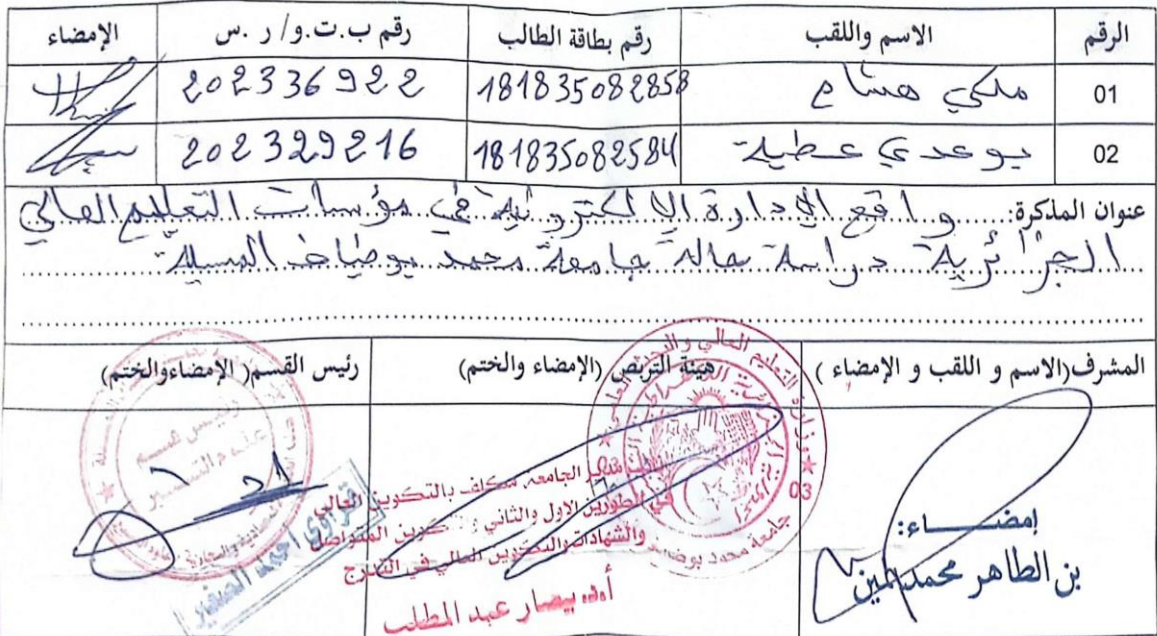 الرقم الاسم واللقب رقم بطاقة الطالب رقم ب.ت.و/ ر .س الإمضاء
01 ملكي هشام 181835082858 202336922
02 بوعدي عطية 181835082584 202329216
عنوان المذكرة: واقع الإدارة الالكترونية في مؤسسات التعليم العالي
الجزائرية دراسة حالة جامعة محمد بوضياف المسيلة
المشرف(الاسم و اللقب و الإمضاء ) هيئة التربص (الإمضاء والختم) رئيس القسم( الإمضاءوالختم)
وزارة التعليم العالي والبحث العلمي
جامعة محمد بوضياف
03
نائب مدير الجامعة مكلف بالتكوين العالي
في الطورين الاول والثاني و التكوين المتواصل
والشهادات والتكوين العالي في التدرج
أ.د. بيصار عبد المطلب
رئيس قسم
علوم التسيير
قراوي احمد الصغير
إمضــــاء:
بن الطاهر محمد لمين